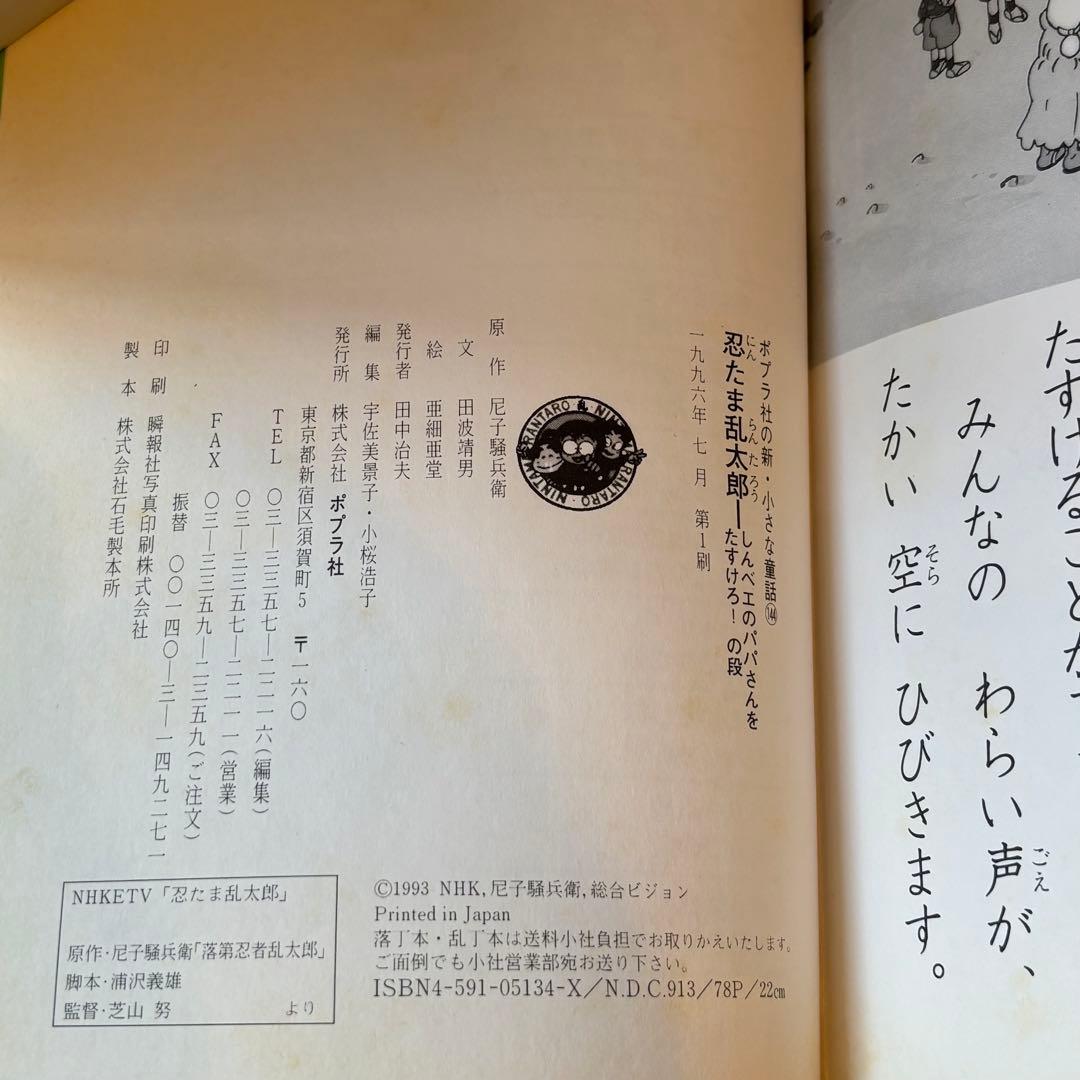 たすけることが
みんなの わらい声が、
ごえ
たかい 空に ひびきます。
そら
ポプラ社の新・小さな童話144
忍たま乱太郎―しんベエのパパさんを
たすけろ!の段
にん らんたろう
一九九六年 七月 第1刷
RANTARO 乱 NINTAMA RANTARO NINTAMA
原作 尼子騒兵衛
文 田波靖男
絵 亜細亜堂
発行者 田中治夫
編集 宇佐美景子・小桜浩子
発行所 株式会社 ポプラ社
東京都新宿区須賀町5 〒一六〇
TEL 〇三―三三五七―二二一六(編集)
〇三―三三五七―二二一一(営業)
FAX 〇三―三三五九―二三五九(ご注文)
振替 〇〇一四〇―三―一四九二七一
印刷 瞬報社写真印刷株式会社
製本 株式会社石毛製本所
©1993 NHK,尼子騒兵衛,総合ビジョン
Printed in Japan
落丁本・乱丁本は送料小社負担でお取りかえいたします。
ご面倒でも小社営業部宛お送り下さい。
ISBN4-591-05134-X/N.D.C.913/78P/22cm
NHKETV「忍たま乱太郎」
原作・尼子騒兵衛「落第忍者乱太郎」
脚本・浦沢義雄
監督・芝山 努 より